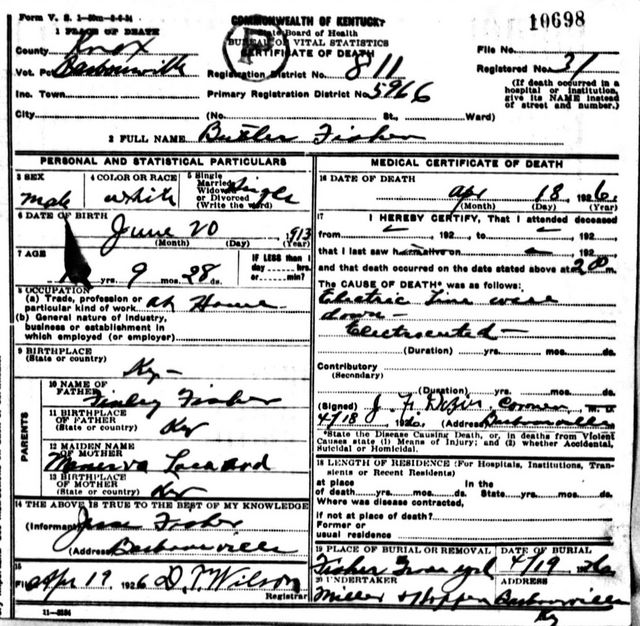 Form V. S. 1-50m-8-6-24
COMMONWEALTH OF KENTUCKY
State Board of Health
BUREAU OF VITAL STATISTICS
CERTIFICATE OF DEATH
10698
1 PLACE OF DEATH
County Knox
Vot. Pct Barbourville
Inc. Town
City
(No. St., Ward)
Registration District No. 811
Primary Registration District No. 5966
File No.
Registered No. 31
(If death occurred in a
hospital or institution,
give its NAME instead
of street and number.)
2 FULL NAME Butler Fisher
PERSONAL AND STATISTICAL PARTICULARS
3 SEX
Male
4 COLOR OR RACE
White
5 Single
Married
Widowed
or Divorced
(Write the word)
Single
6 DATE OF BIRTH
June 20, 1913
(Month) (Day) (Year)
7 AGE
yrs. 9 mos. 28 ds.
IF LESS than 1
day hrs.
or min?
8 OCCUPATION
(a) Trade, profession or
particular kind of work at Home
(b) General nature of industry,
business or establishment in
which employed (or employer)
9 BIRTHPLACE
(State or country) Ky-
PARENTS
10 NAME OF
FATHER Finley Fisher
11 BIRTHPLACE
OF FATHER
(State or country) Ky
12 MAIDEN NAME
OF MOTHER
13 BIRTHPLACE
OF MOTHER
(State or country) Ky
14 THE ABOVE IS TRUE TO THE BEST OF MY KNOWLEDGE
(Informant) Jesse Fisher
(Address) Barbourville
15
Filed Apr 19 1926 D. T. Wilson
Registrar
11-3184
MEDICAL CERTIFICATE OF DEATH
16 DATE OF DEATH
Apr 18, 1926
(Month) (Day) (Year)
17 I HEREBY CERTIFY, That I attended deceased
from , 192 , to , 192 ,
that I last saw h alive on , 192 ,
and that death occurred on the date stated above at 2 00 m.
The CAUSE OF DEATH* was as follows:
Electric Line were
down-
Electrocuted-
(Duration) yrs. mos. ds.
Contributory
(Secondary)
(Duration) yrs. mos. ds.
(Signed) J. F. Coroner, M. D.
4/18, 1926. (Address) Barbourville
*State the Disease Causing Death, or, in deaths from Violent
Causes state (1) Means of Injury; and (2) whether Accidental,
Suicidal or Homicidal.
18 LENGTH OF RESIDENCE (For Hospitals, Institutions, Tran-
sients or Recent Residents)
at place In the
of death yrs. mos. ds. State yrs. mos. ds.
Where was disease contracted,
if not at place of death?
Former or
usual residence
19 PLACE OF BURIAL OR REMOVAL
Fisher Grave yd
DATE OF BURIAL
4/19 1926
20 UNDERTAKER
Miller & Hopper
ADDRESS
Barbourville
Ky